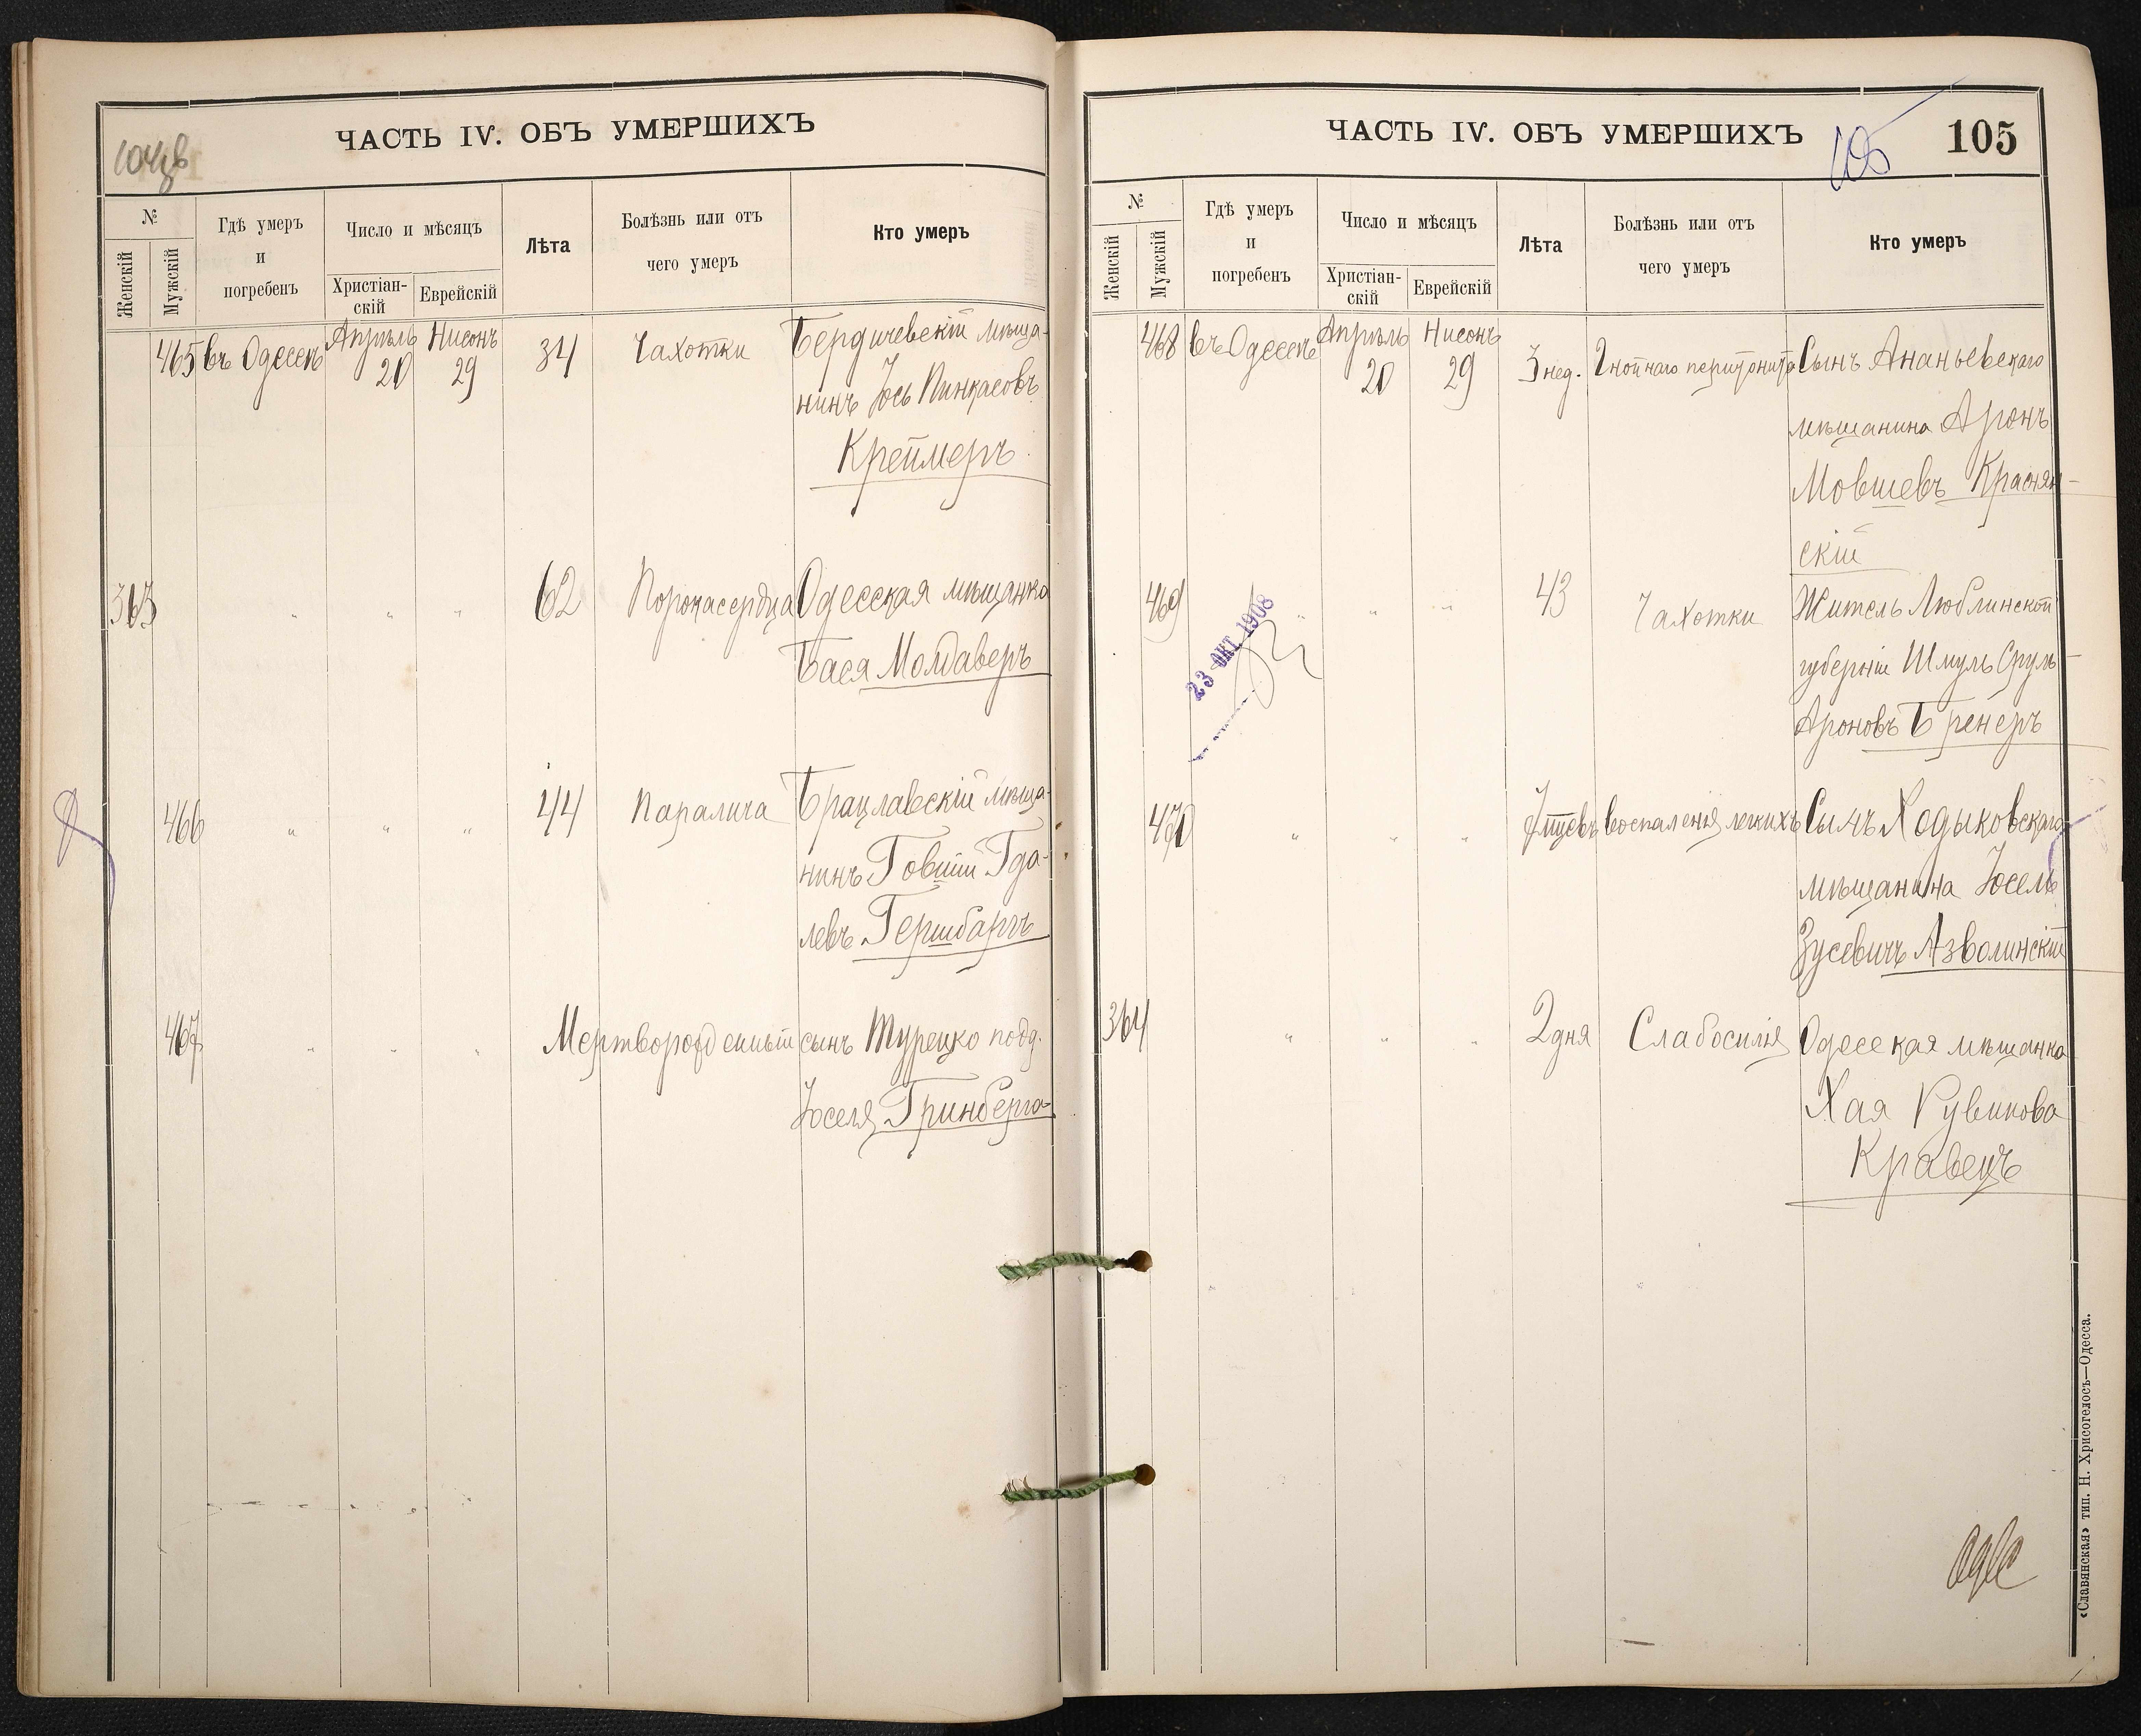 ЧАСТЬ IV. ОБЪ УМЕРШИХЪ
№
Женскій
Мужскій
Гдѣ умеръ
и
погребенъ
Число и мѣсяцъ
Христіан-
скій
Еврейскій
Лѣта
Болѣзнь или отъ
чего умеръ
Кто умеръ
465 въ Одессѣ Апрѣль 20 Нисонъ 29 34 Чахотки Бердичевскій мѣща-
нинъ Іось Пинкасовъ
Креймеръ
363 " " " 62 Порока сердца Одесская мѣщанка
Бася Молдаверъ
466 " " " 44 Паралича Брацлавскій мѣща-
нинъ Товшій Гда-
левъ Гершбаргъ
467 " " " Мертворожденный сынъ Турецко подд.
Іоселя Гринберга
ЧАСТЬ IV. ОБЪ УМЕРШИХЪ
105
105
№
Женскій
Мужскій
Гдѣ умеръ
и
погребенъ
Число и мѣсяцъ
Христіан-
скій
Еврейскій
Лѣта
Болѣзнь или отъ
чего умеръ
Кто умеръ
468 въ Одессѣ Апрѣль 20 Нисонъ 29 3 нед. Гнойнаго перитонита Сынъ Ананьевскаго
мѣщанина Аронъ
Мовшевъ Краснян-
скій
469 " " " 43 Чахотки Житель Люблинской
губерніи Шмуль Сруль
Ароновъ Бренеръ
23 ОКТ. 1908
470 " " " 7 мѣсевъ воспаленія легкихъ Сынъ Ходыковскаго
мѣщанина Іосель
Зусевичъ Азволинскій
364 " " " 2 дня Слабосилія Одесская мѣщанка
Хая Рувинова
Кравецъ
«Славянская» тип. Н. Хрисогелосъ—Одесса.